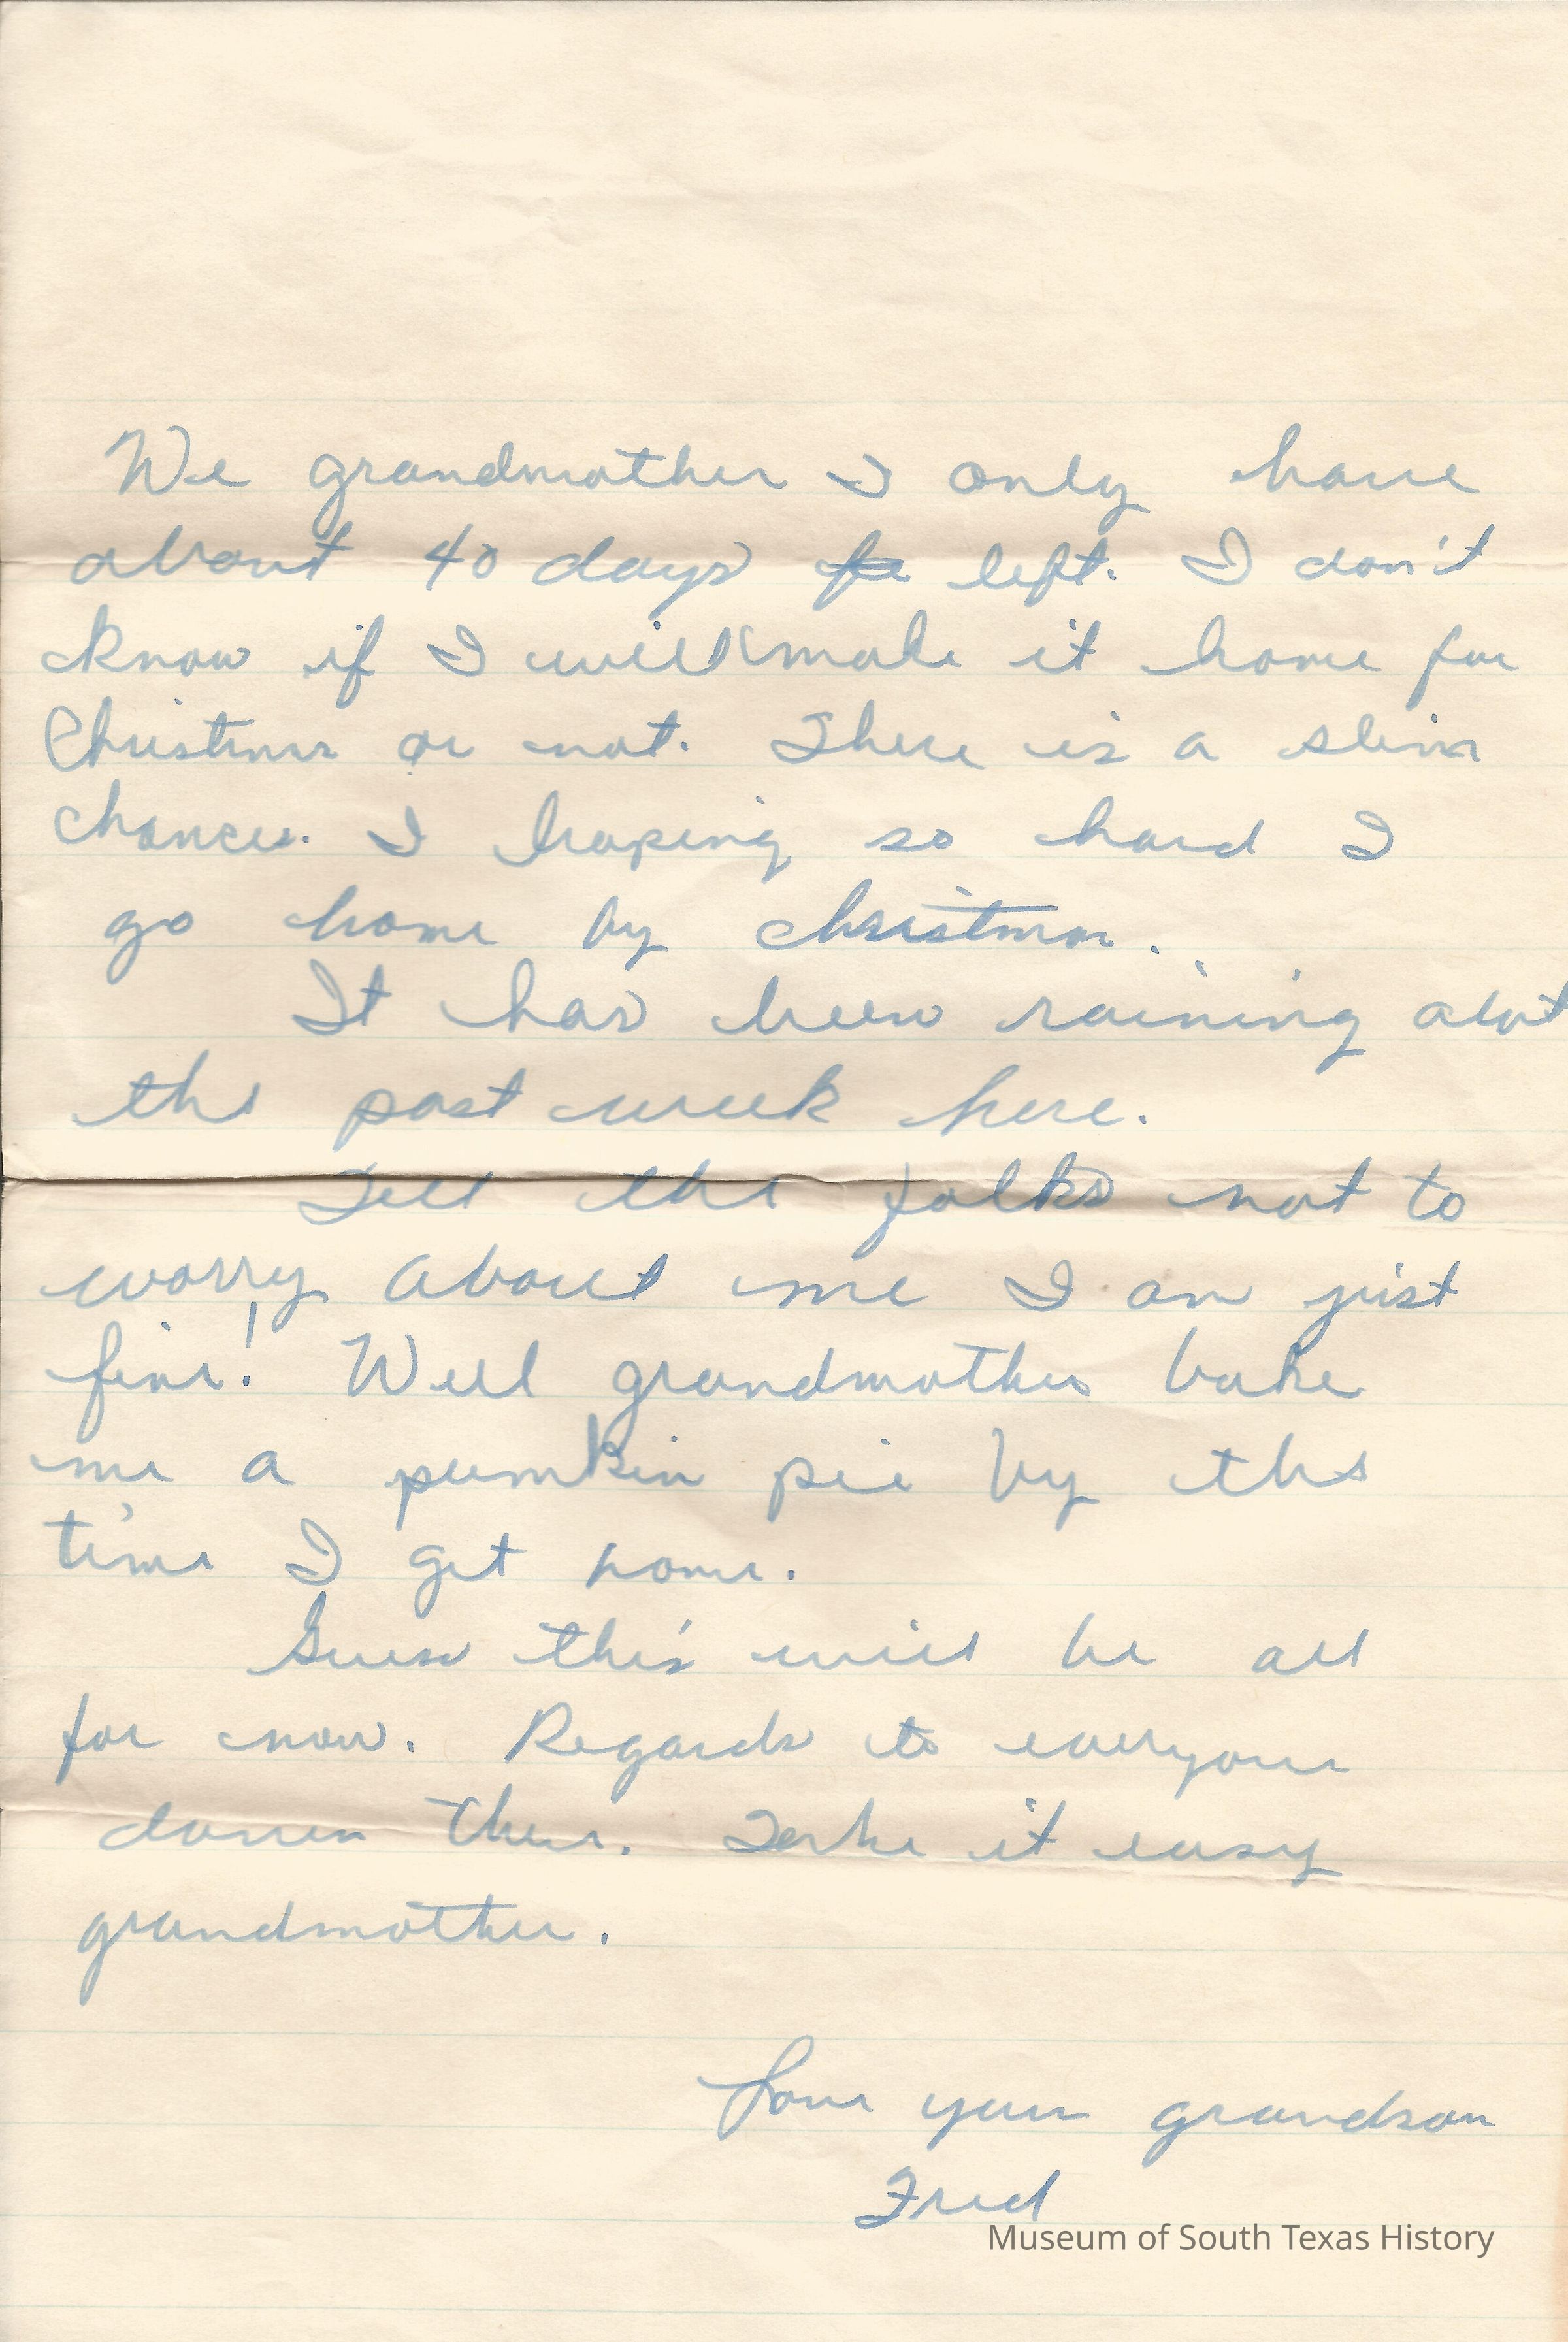 We grandmother I only have
about 40 days left. I don't
know if I will make it home for
Christmas or not. There is a slim
chance. I hoping so hard I
go home by christmas.
It has been raining alot
the past week here.
Tell the folks not to
worry about me I am just
fine! Well grandmother bake
me a pumkin pie by the
time I get home.
Guess this will be all
for now. Regards to everyone
down there. Take it easy
grandmother.
Love your grandson
Fred
Museum of South Texas History